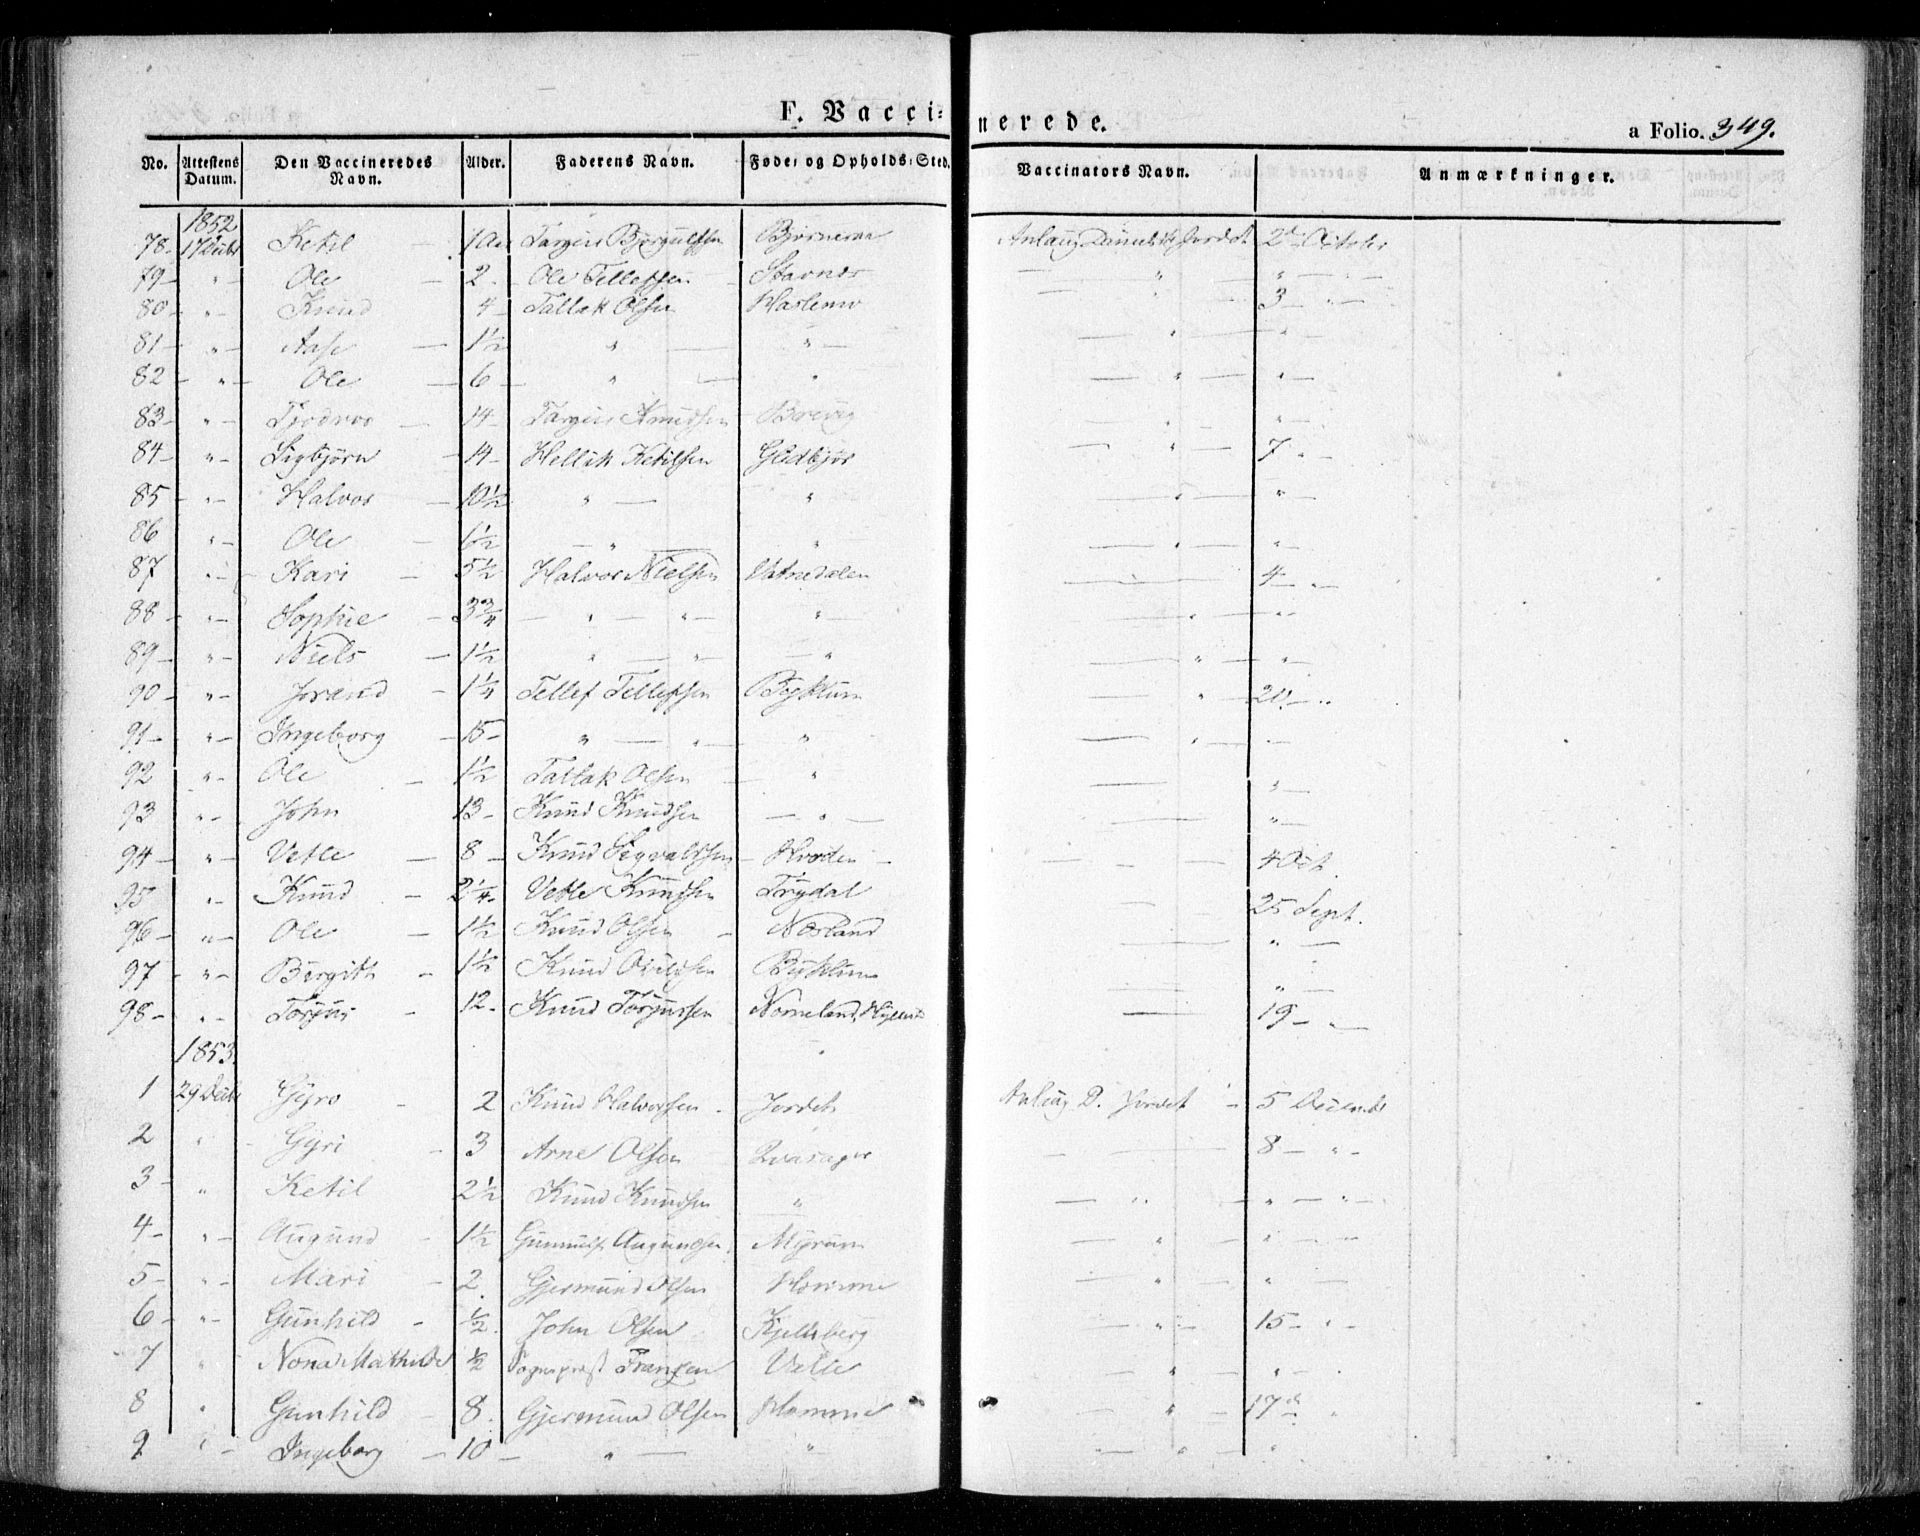 F. Vaccinerede.
a Folio. 349.
No. Attestens Datum. Den Vaccineredes Navn. Alder. Faderens Navn. Føde- og Opholds-Sted. Vaccinators Navn. Anmærkninger.
1852
78- 17 Decbr Ketil - 1 Aar Targeir Bjørgulfsen Bjørneraa Anlaug Daniels Jordet 2de October
79 - " - Ole - 2. Ole Tellefsen - Stavnes — " — " —
80 - " - Knud 4 Tallak Olsen Haslemo — " — 3 - " -
81 - " - Aase - 1½ " — " - — " — " -
82 - " - Ole - 6 - " — " — " — " -
83 - " - Tjodvor - 14 - Targeir Knudsen Berevig — " — " -
84 - " - Sigbjörn - 14 - Hellik Ketilsen Glidbjör — " — 7 " -
85 - " - Halvor - 10½ " — " — " — " -
86 " - Ole - 1½ — " — " — " — " -
87 " - Kari - 5½ Halvor Nielsen Vatnedalen — 4 - " -
88 - " - Sophie - 3¾ — " — " — " — " — " -
89 - " - Niels - 1½ " — " — " — " — " -
90 - " - Jorand - 1¼ Tellef Tellefsen Bykkum — " — 20 - "
91 - " - Ingeborg - 15 - " — " — " — " — " -
92 " - Ole - 1½ Tallak Olsen - " — " -
93 " - John 13 - Knud Knudsen — " — — " -
94 - " - Vetle - 8 - Knud Sigvaldsen - Hvoden - — 4 Oct.
95 " - Knud - 2¼. Vetle Knudsen Trydal — 25 Sept.
96 - " - Ole - 1½ Knud Olsen - Næsland — " -
97 - " - Bergith - 1½ Knud Bykkum — " -
98 - " - Torjus - 12. Knud Torjussen Nomeland, — 19 - " -
1853.
1 29 Decbr Gyro - 2 Knud Halvorsen - Jordet Anlaug D. Jordet - 5 Decembr
2 " - Gyri - 3 Arne Olsen Qvasager — 8 - " -
3 - " Ketil 2½ Knud Knudsen " — " — " - " -
4 - " - Augund - 1½ Gunnulf Augundsen Myrum — " — " - " -
5 - " - Mari - 2. Gjermund Olsen Homme — " — "
6 - " - Gunhild - ½ John Olsen Kjelleberg — " — 15 - " -
7 " Nona Mathilde ½ Sognepræst Franzen Valle — " — " -
8 " Gunhild - 8. Gjermund Olsen Homme — " — 17de "
9 " - Ingeborg - 10 - " — " - — " — "